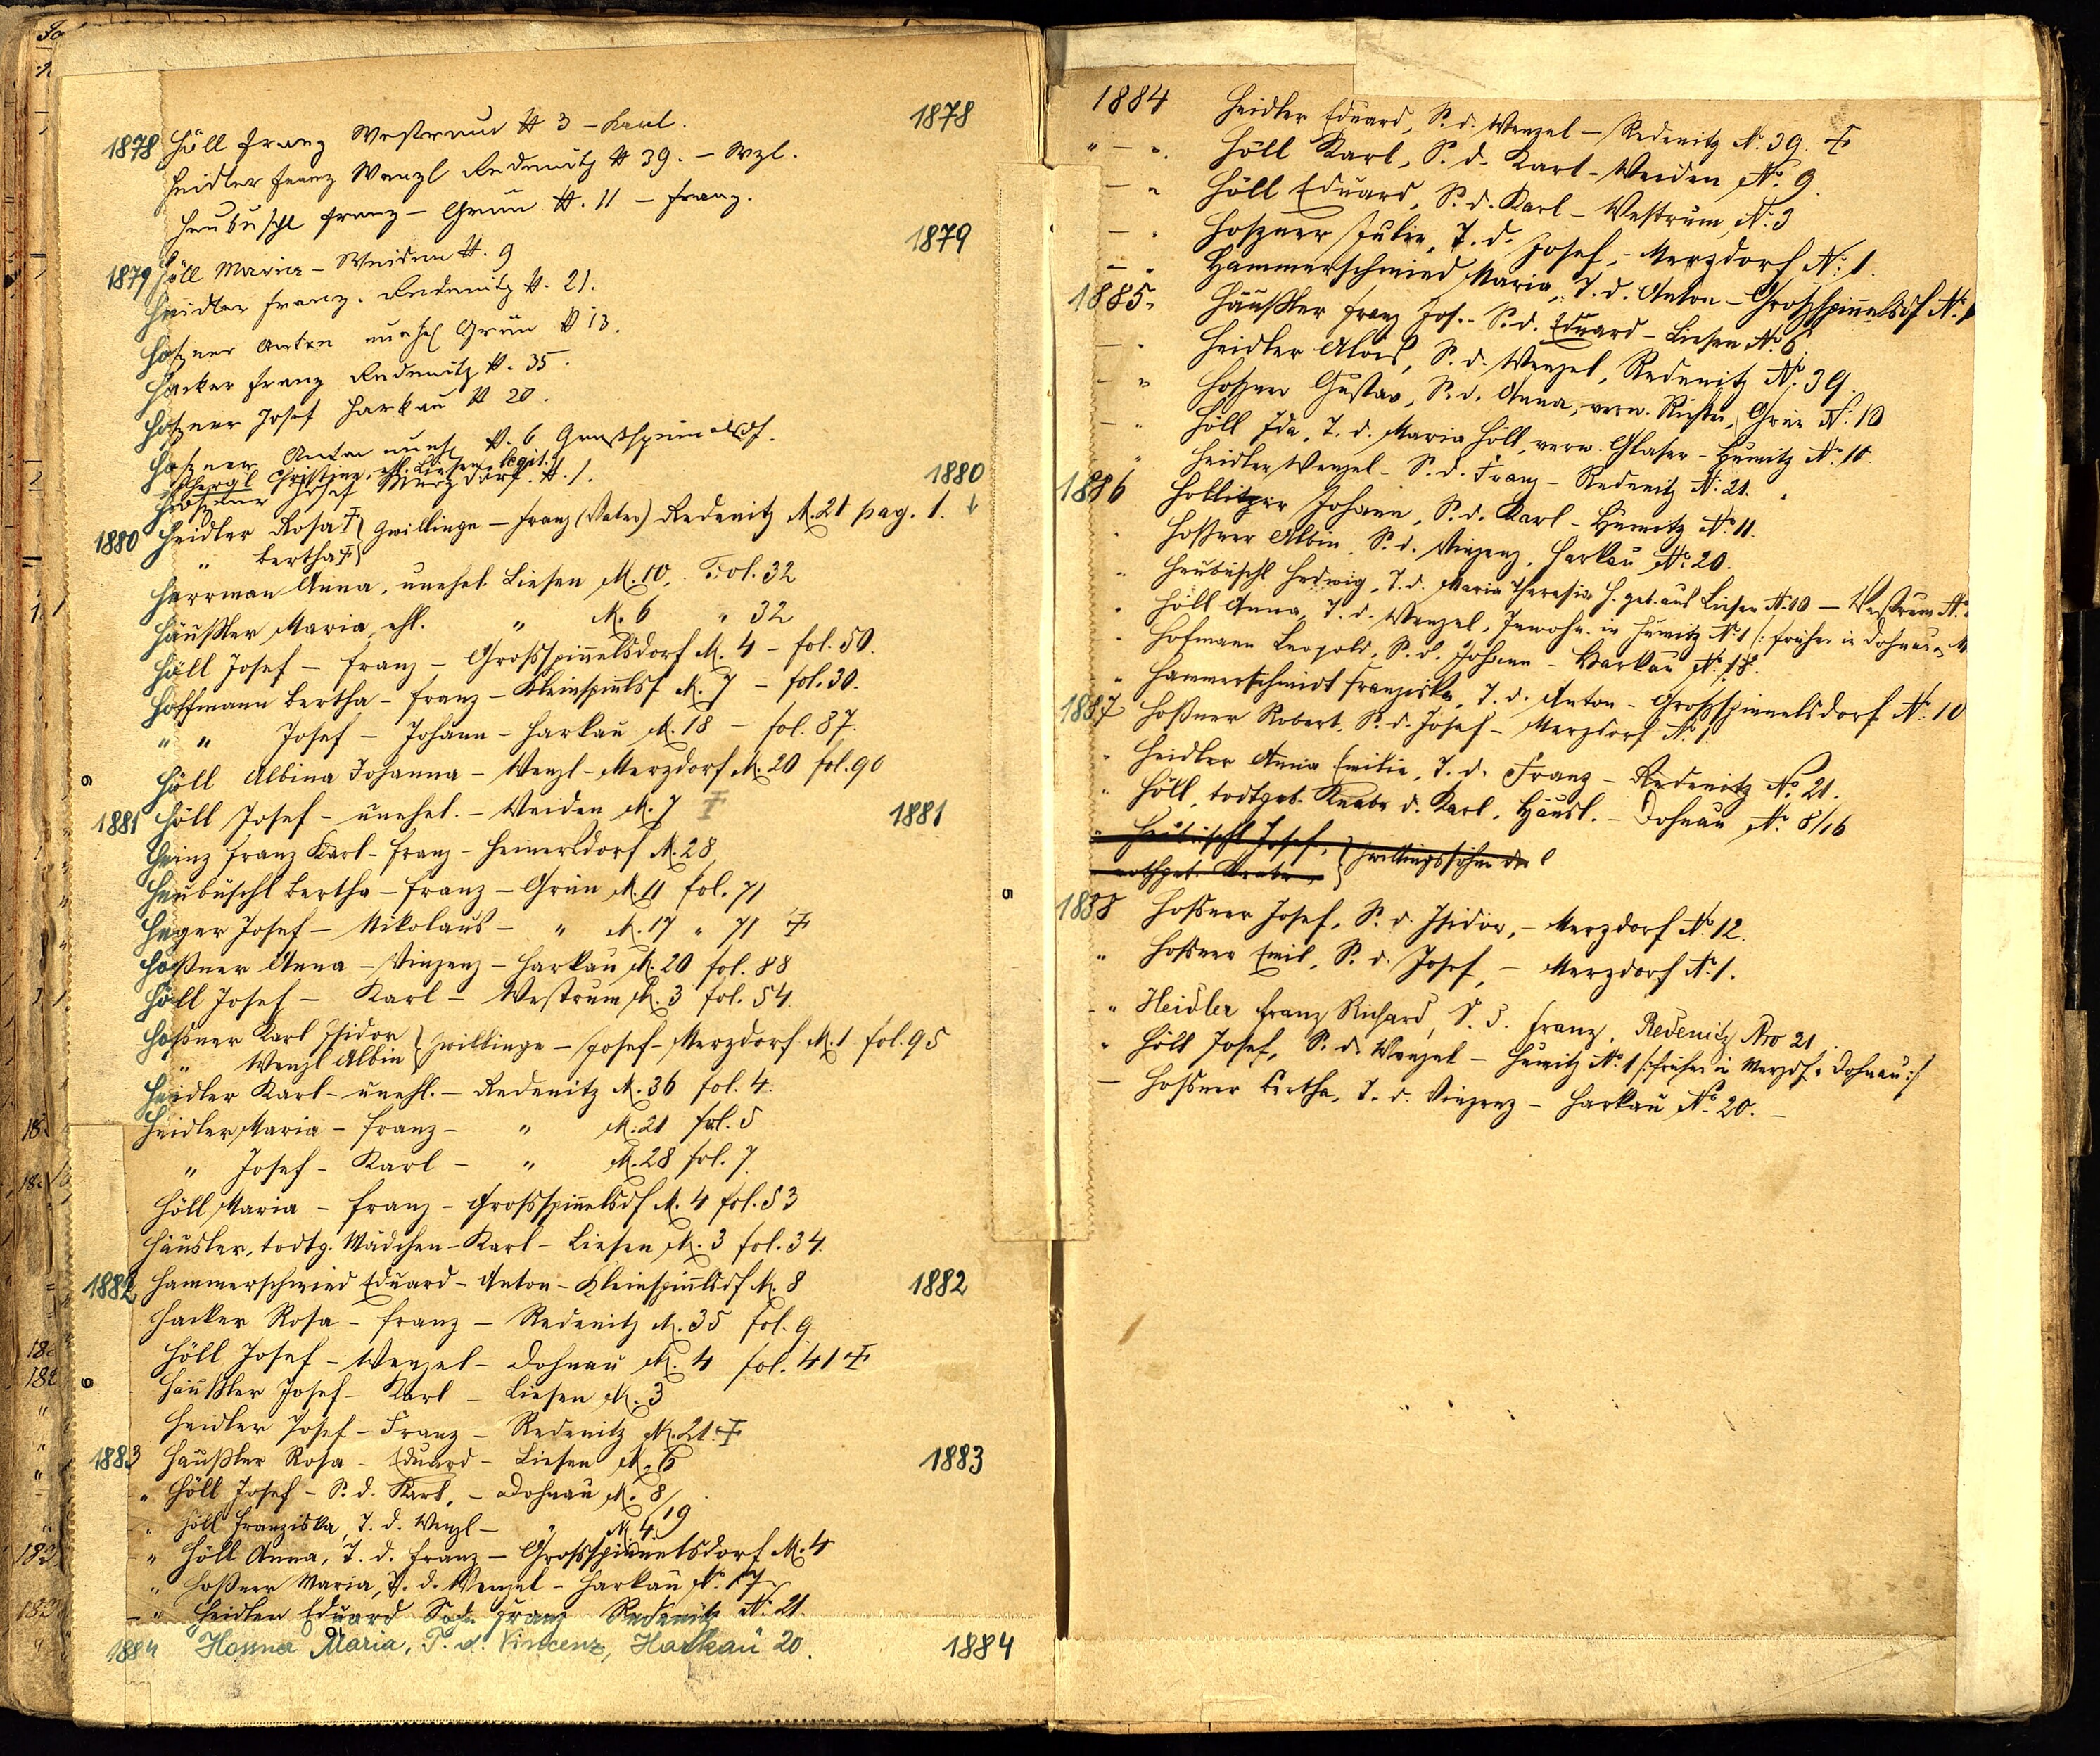 1878 Höll Franz Westrum N 3 – Karl. 1878
Heidler Franz Wenzl Redenitz N 39. – Wzl.
Heubüschl Franz – Grün N. 11 – Franz.
1879 Höll Maria – Weiden N. 9 1879
Heidler Franz. Redenitz N. 21.
Hoßner Anton unehel Grün N 13.
Hacker Franz Redenitz N. 35.
Hoßner Josef Harkau N 20.
Hoßner Anton unehl N. 6 Großspinnelsdf.
Christine, ehl. Liesen, legit.
Hossner Josef Merzdorf. N. 1.
1880 Heidler Rosa Ŧ } Zwillinge – Franz (Vater) Redenitz N. 21 pag. 1. 1880 ↓
" Bertha Ŧ }
Herrman Anna, unehel. Liesen N. 10, Fol. 32
Häußler Maria ehl. " N. 6 " 32
Höll Josef – Franz – Grossspinnelsdorf N. 4 – fol. 50.
Hoffmann Bertha – Franz – Kleinspinnlsf N. 7 – fol. 30.
" " Josef – Johann – Harkau N. 18 – fol. 87.
Höll Albina Johanna – Wenzl – Merzdorf N. 20 fol. 90
1881 Höll Josef – unehel. – Weiden N. 7 Ŧ 1881
Heinz Franz Karl – Franz – Heinersdorf N. 28,
Heubüschl Bertha – Franz – Grün N. 11 fol. 71
Heger Josef – Nikolaus – " N. 17 " 71 Ŧ
Hoßner Anna – Vinzenz – Harkau N. 20 fol. 88
Höll Josef – Karl – Westrum N. 3 fol. 54.
Hossner Karl Isidor } Zwillinge – Josef – Merzdorf N. 1 fol. 95
" Wenzl Albin }
Heidler Karl – unehl. – Redenitz N. 36 fol. 4.
Heidler Maria – Franz – " N. 21 fol. 5
" Josef – Karl – " N. 28 fol. 7.
Höll Maria – Franz – Grossspinnelsdf N. 4 fol. 53
Häusler, todtg. Mädchen – Karl – Liesen N. 3 fol. 34.
1882 Hammerschmied Eduard – Anton – Kleinspinnlsdf N. 8 1882
Hacker Rosa – Franz – Redenitz N. 35 fol. 9.
Höll Josef – Wenzel – Dohnau N. 4 fol. 41 Ŧ
Häußler Josef – Karl – Liesen N. 3
Heidler Josef – Franz – Redenitz N. 21. Ŧ
1883 Häußler Rosa – Eduard – Liesen N. 6 1883
" Höll Josef – S. d. Karl, – Dohnau N. 8/19
" Höll Franziska, T. d. Wenzl – " N. 4.
" Höll Anna, T. d. Franz – Grossspinnelsdorf N. 4
" Hoßner Maria, T. d. Wenzel – Harkau N. 17
– " Heidler Eduard Franz Redenitz N. 21.
1884 Hossner Maria, T. d. Vincenz, Harkau 20. 1884
1884 Heidler Eduard, S. d. Wenzel – Redenitz N. 39. Ŧ
" – " Höll Karl, S. d. Karl – Weiden No. 9.
– " Höll Eduard, S. d. Karl – Westrum, N. 3
– " Hoßner Julie, T. d. Josef, – Merzdorf N. 1.
– " Hammerschmied Maria, T. d. Anton – Großspinnelsdf N.
1885. Häußler Franz Jos. – S. d. Eduard – Liesen No. 6.
– " Heidler Alois, S. d. Wenzel, Redenitz No. 39.
– " Hoßner Gustav, S. d. Anna, verw. Richter, Grün N. 10
– " Höll Ida, T. d. Maria Höll, verw. Glaser – Humitz No. 10.
" Heidler Wenzel – S. d. Franz – Redenitz N. 21.
1886 Hollitzer Johann, S. d. Karl – Humitz No. 11.
" Hoßner Albin, S. d. Vinzenz, Harkau No. 20.
" Heubüschl Hedwig, T. d. Maria Theresia H. geb. aus Liesen N. 10 – Westrum N.
" Höll Anna, T. d. Wenzel, Inwohn. in Humitz No. 1 /: früher in Dohnau
" Hofmann Leopold, S. d. Johann – Harkau No. 18.
" Hammerschmidt Franziska, T. d. Anton – Grossspinnelsdorf N. 10
1887 Hoßner Robert, S. d. Josef – Merzdorf N. 1.
" Heidler Anna Emilie, T. d. Franz – Redenitz No. 21.
" Höll, todtgeb. Knabe d. Karl, Häusl. – Dohnau No. 8/16
" Heubüschl Josef, } Zwillingssöhne d.
todtgeb. Knabe, }
1888 Hossner Josef, S. d. Isidor, – Merzdorf No. 12.
" Hossner Emil, S. d. Josef, – Merzdorf No. 1.
– " Heidler Franz Richard, S. d. Franz, Redenitz Nro 21.
" Höll Josef, S. d. Wenzel – Humitz No. 1 /: früher in Merzdf. Dohnau :/
– Hossner Bertha, T. d. Vinzenz – Harkau No. 20. –